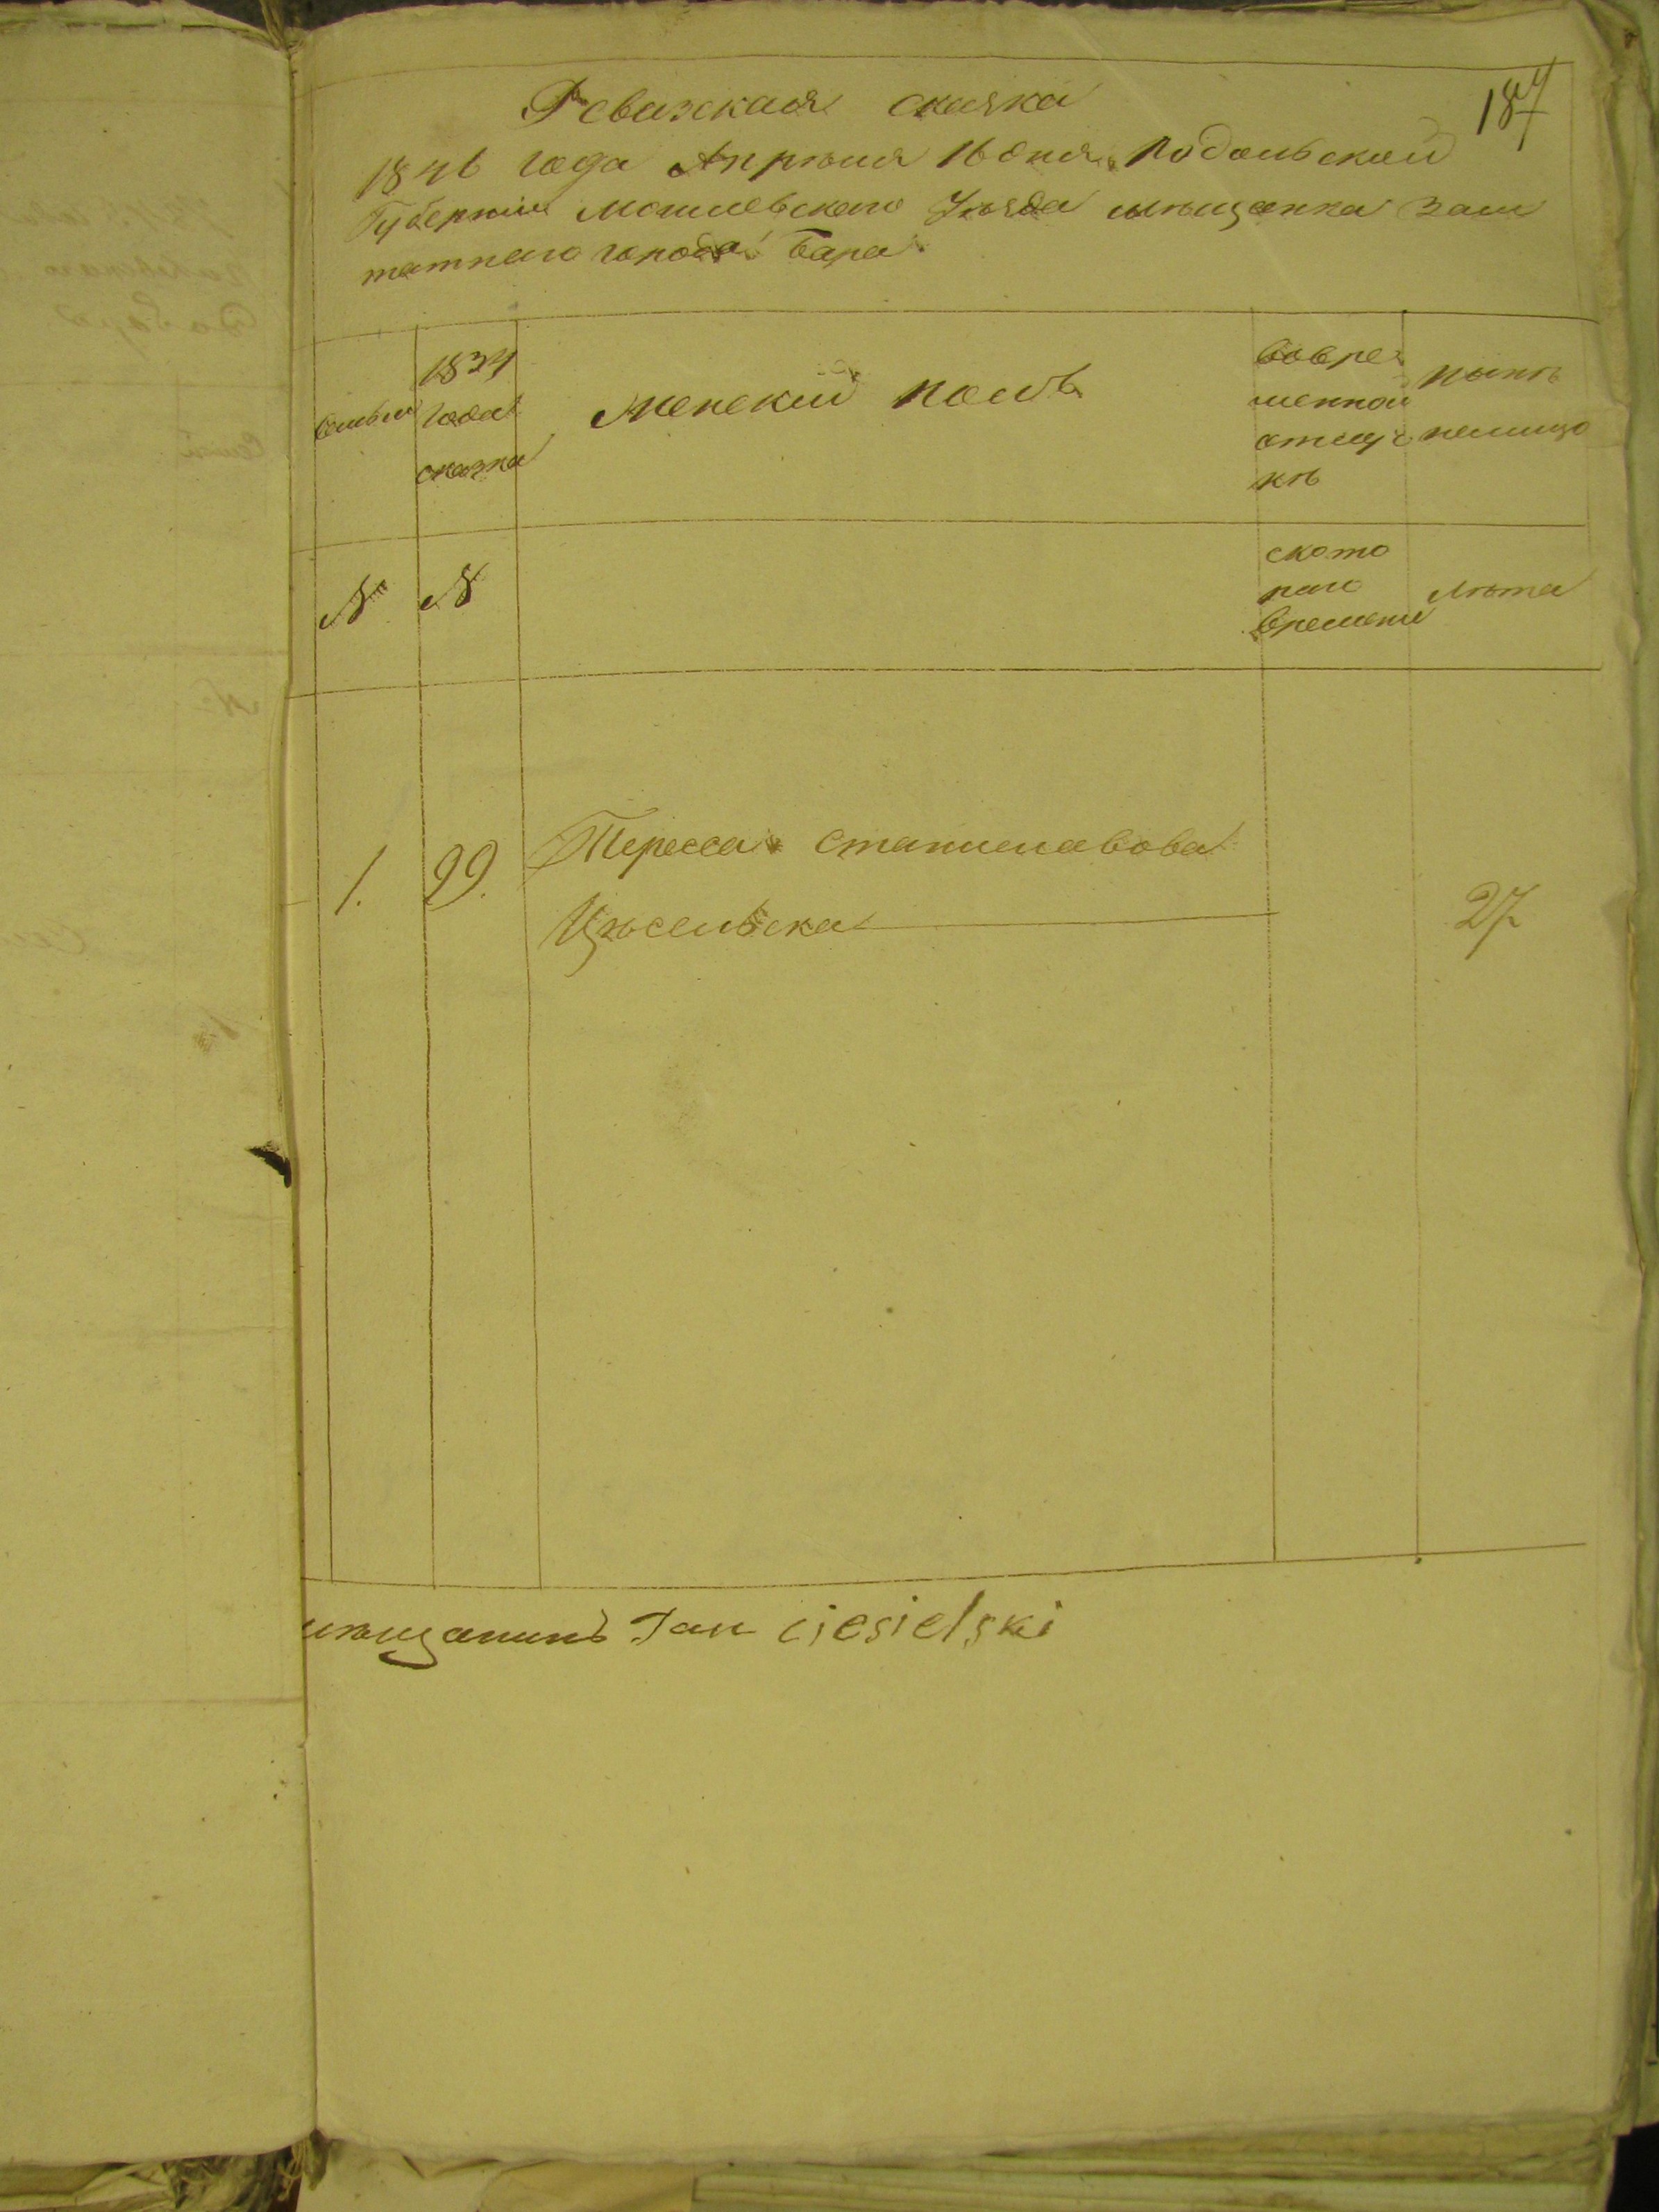 187
Ревизская сказка
1846 года Апрѣля 16 дня Подольской
Губерніи Могилевскаго Уѣзда мѣщанка заш
татнаго города Бара
Семьи
1834
года
сказка
Женский полъ
вовре
менной
отлуч
кѣ
нынѣ
налицо
№
№
ското
раго
времени
лѣта
1.
99.
Тересса Станиславова
Цѣсельска
27
мѣщанинъ Jan Ciesielski